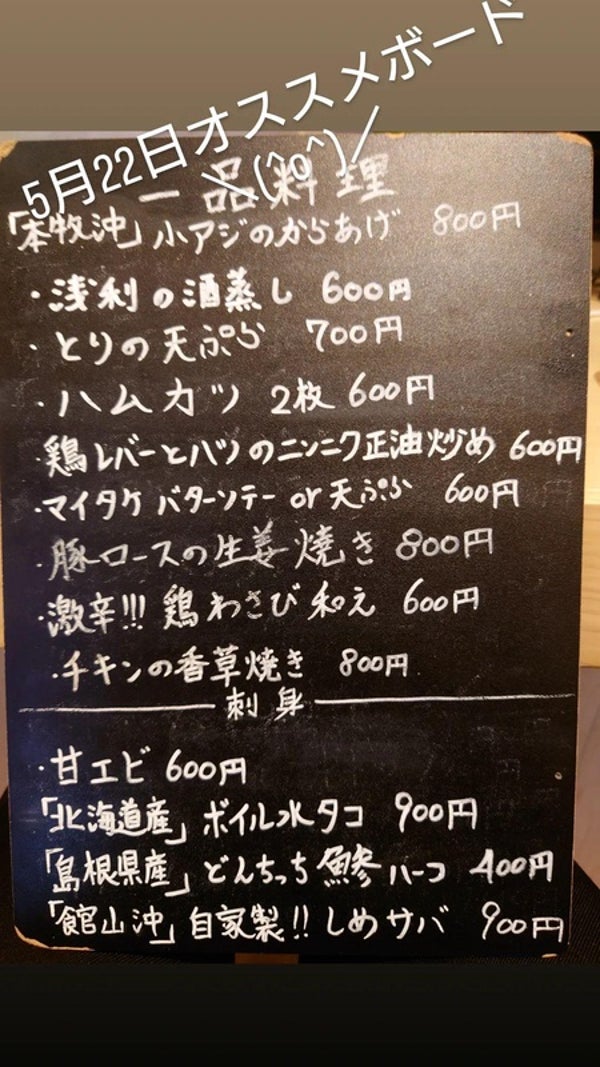 5月22日オススメボード
＼(^o^)／
一品料理
「本牧沖」小アジのからあげ 800円
・浅利の酒蒸し 600円
・とりの天ぷら 700円
・ハムカツ 2枚 600円
・鶏レバーとハツのニンニク正油炒め 600円
・マイタケバターソテー or 天ぷら 600円
・豚ロースの生姜焼き 800円
・激辛!!! 鶏わさび和え 600円
・チキンの香草焼き 800円
刺身
・甘エビ 600円
「北海道産」ボイル水タコ 900円
「島根県産」どんちっち鯵ハーフ 400円
「館山沖」自家製!! しめサバ 900円